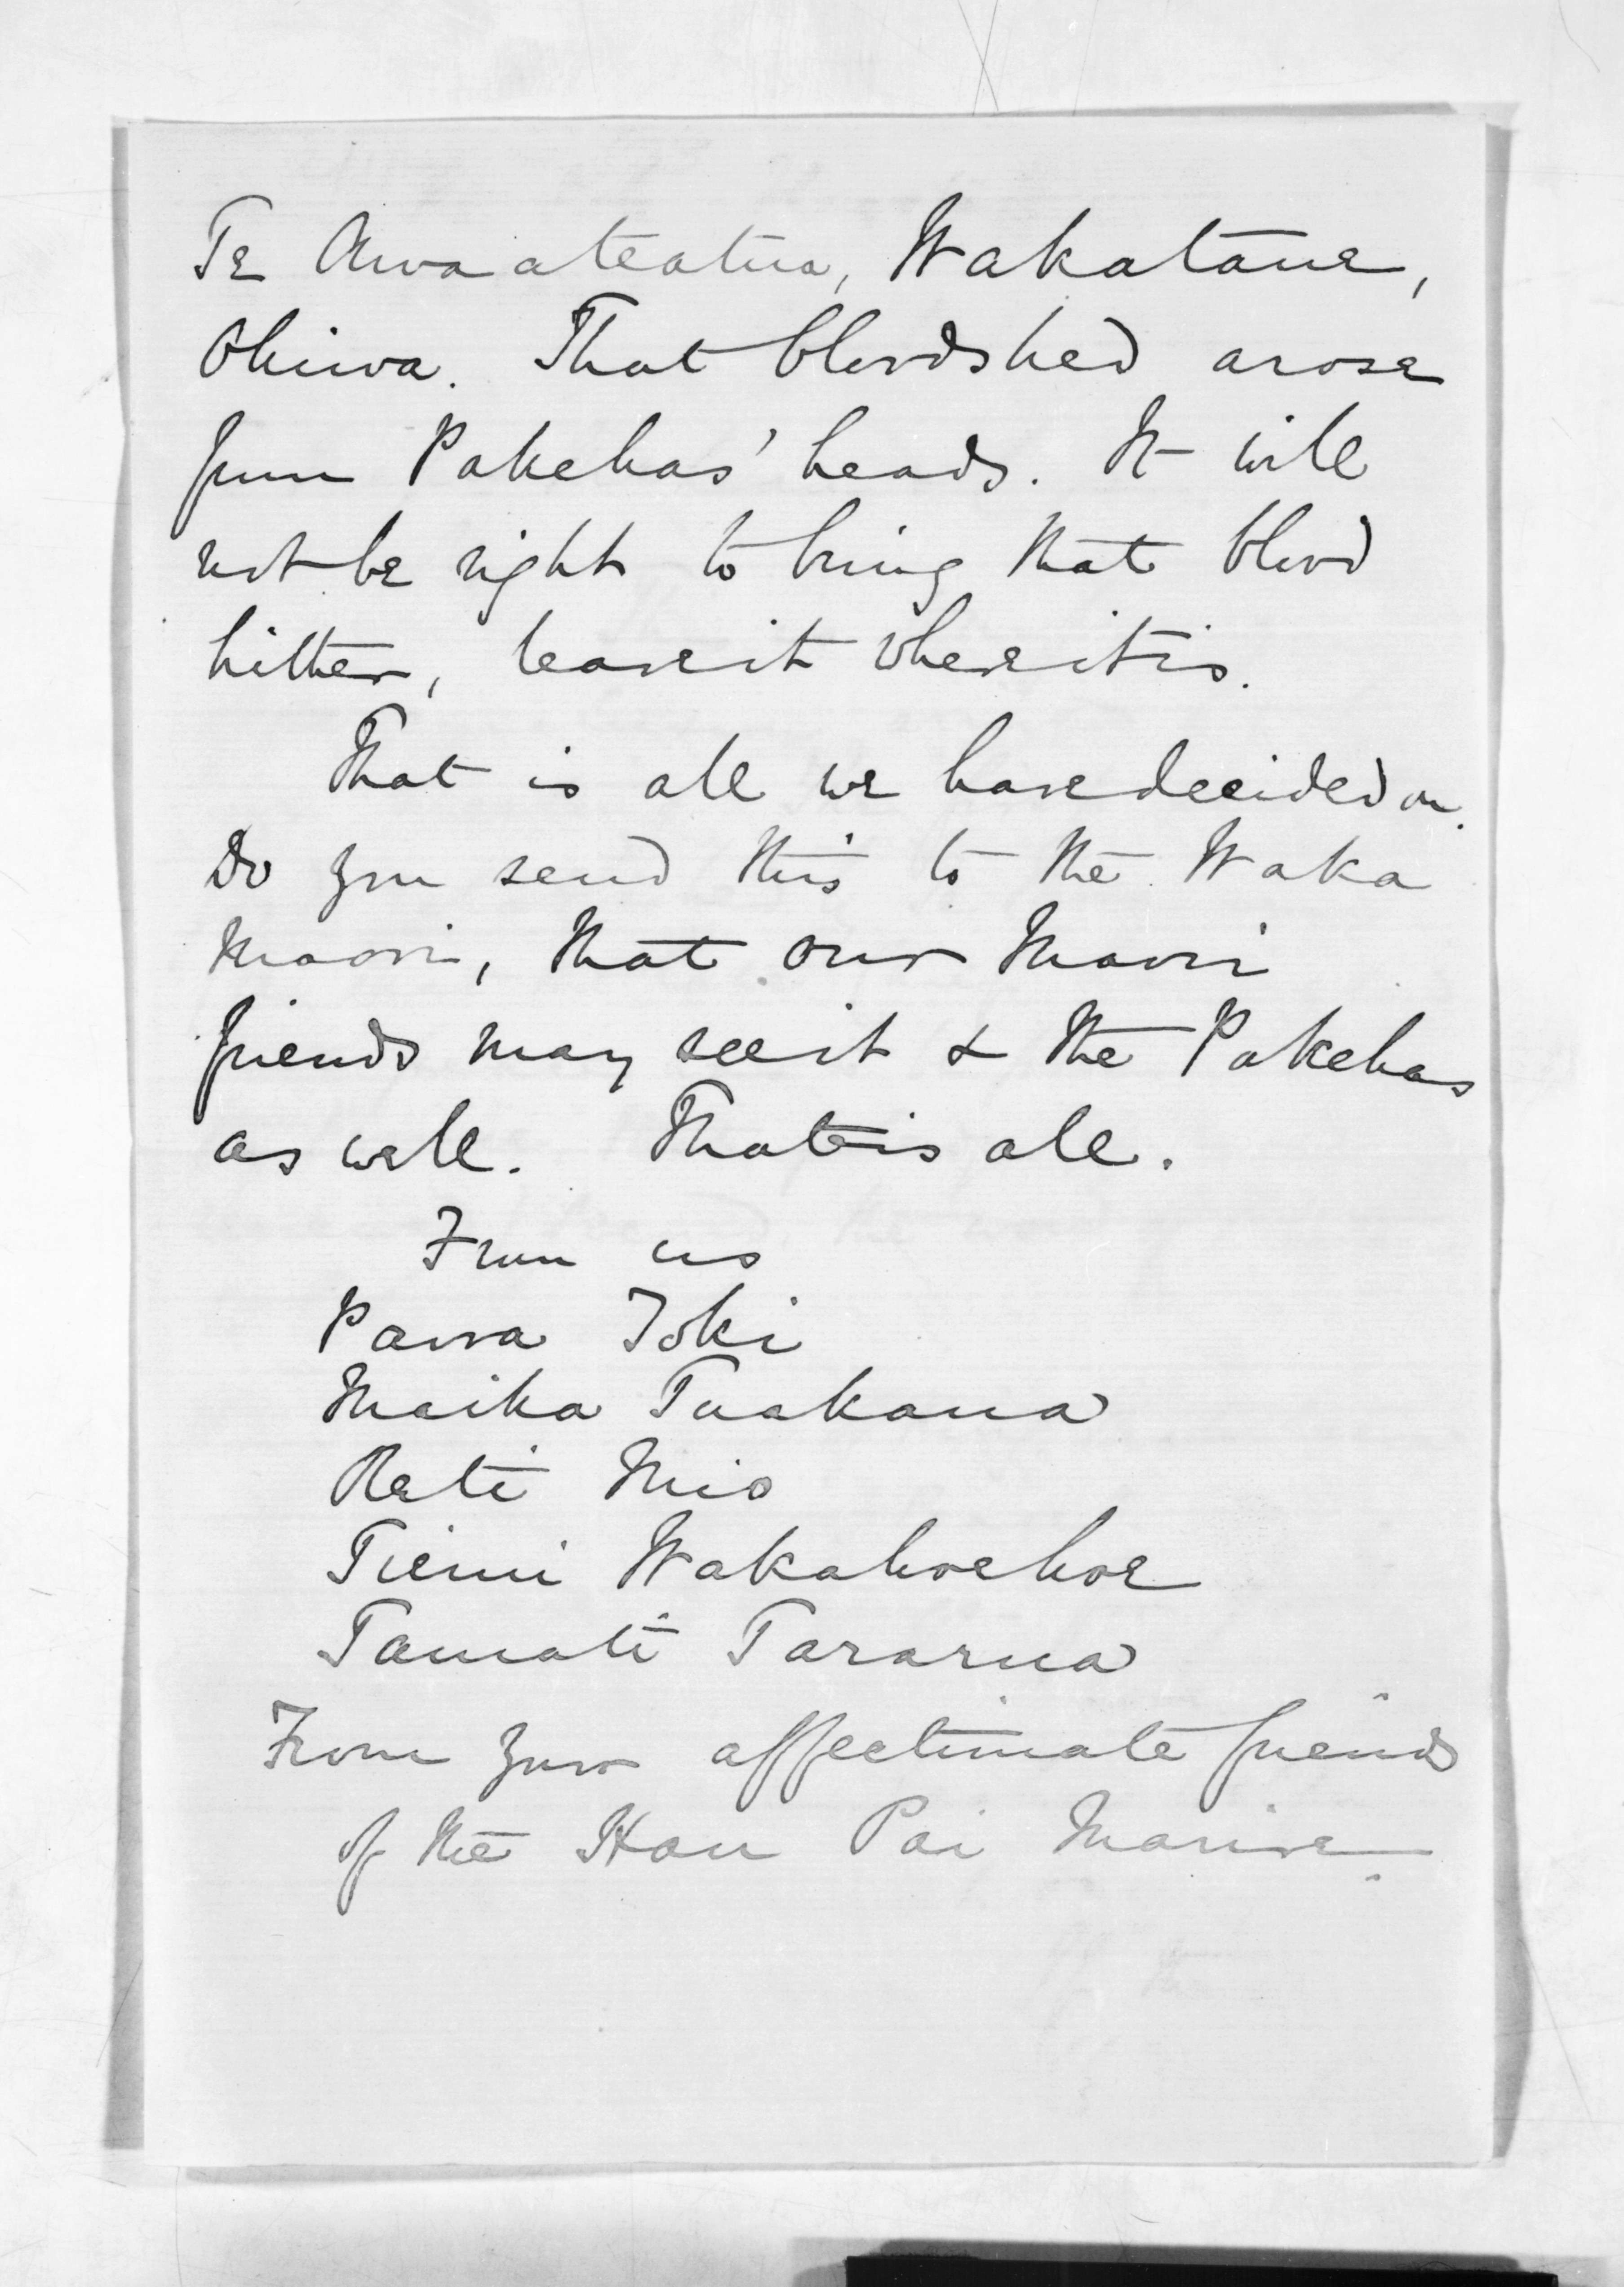 Te Awaateatua, Wakatane,
Ohiwa. That bloodshed arose
from Pakehas' heads. It will
not be right to bring that blood
hither, leave it where it is.
That is all we have decided on.
Do you send this to the Waka
Maori, that our Maori
friends may see it & the Pakehas
as well. That is all.
From us
Paora Toki
Maika Tuakana
Reti Mio
Tiemi Wakahoehoe
Tamati Tararua
From your affectionate friends
of the Hau Pai Marire